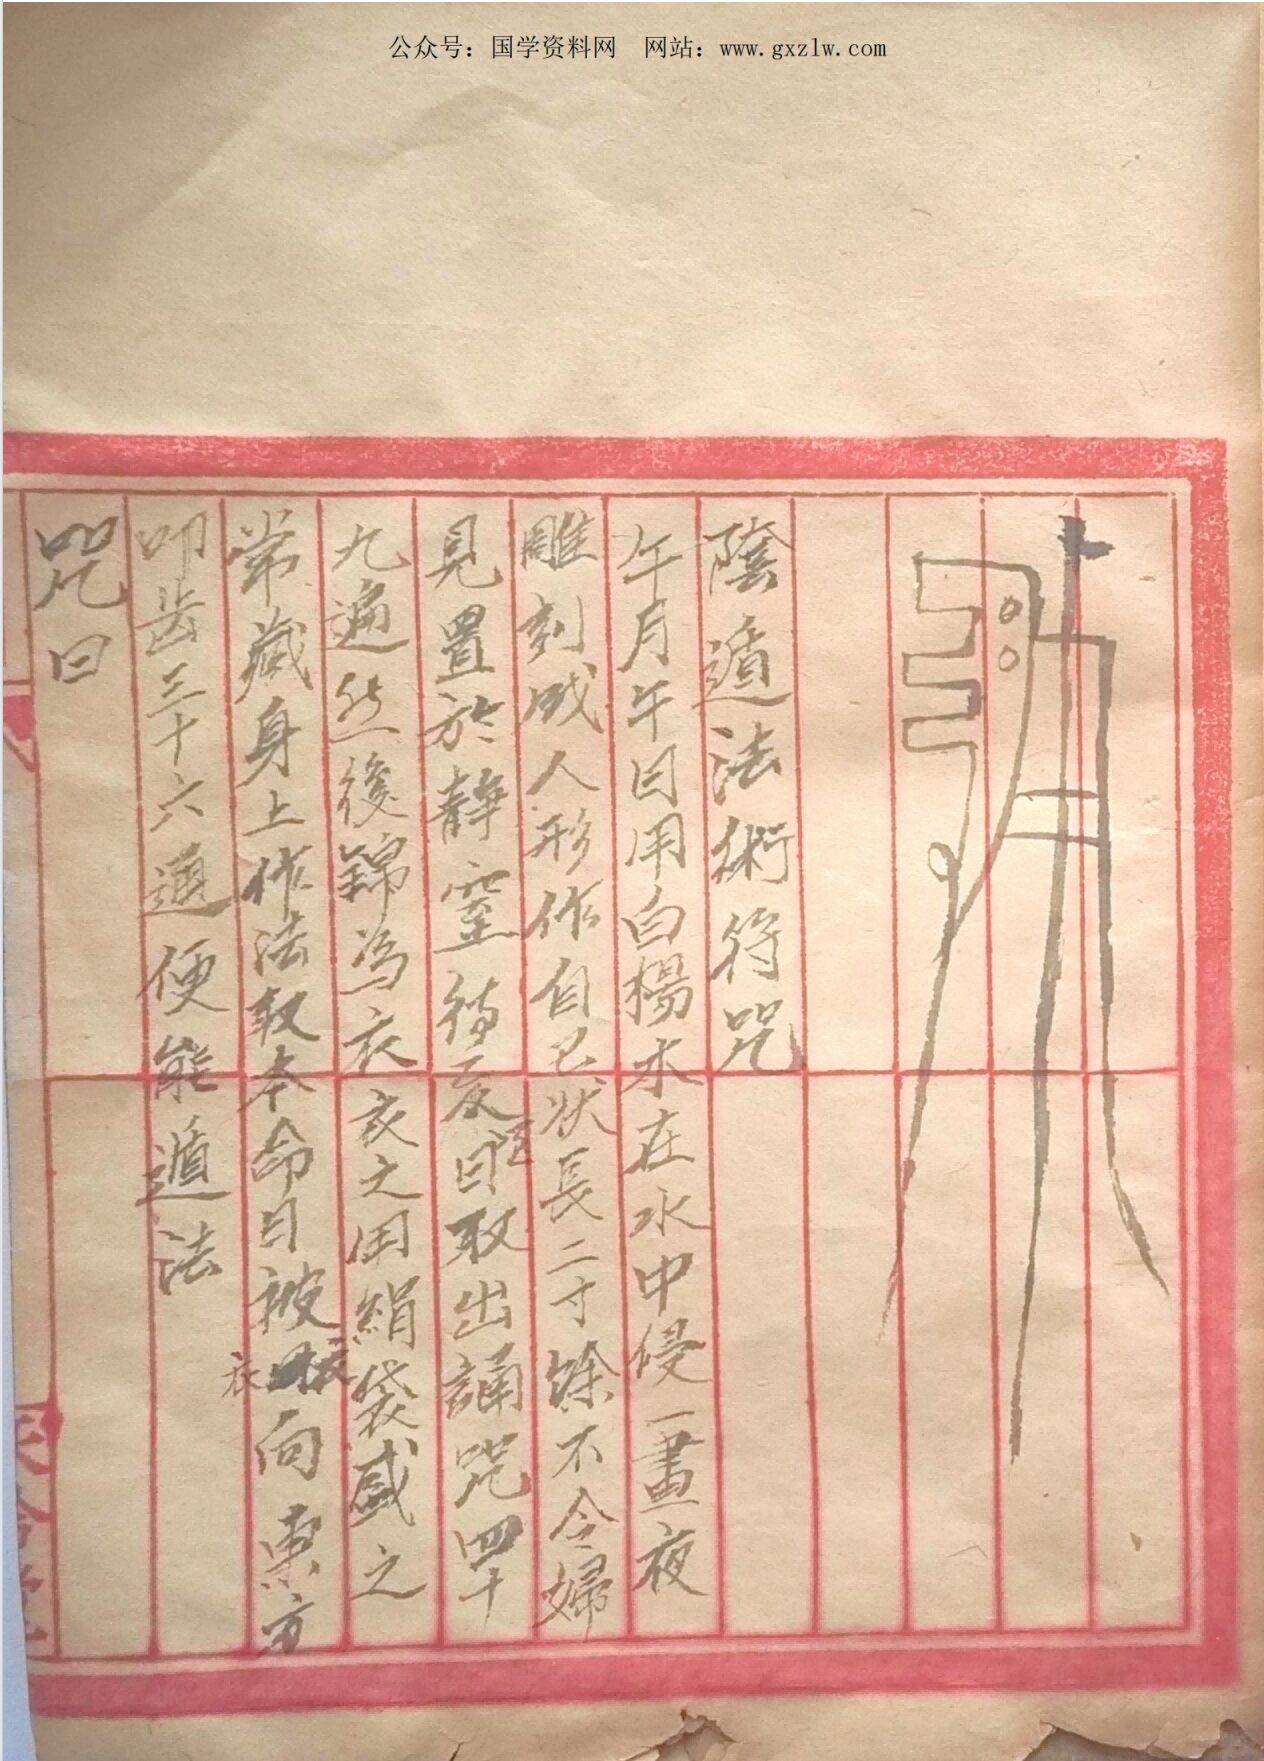 公众号：国学资料网 网站：www.gxzlw.com
陰遁法術符咒
午月午日用白楊木在水中侵一晝夜
雕刻成人形作自己狀長二寸餘不令婦
見置於靜室待亥日取出誦咒四十
九遍然後錦為衣衣之用絹袋盛之
常藏身上作法取本命日被衣向東方
叩齿三十六通便能遁法
咒曰